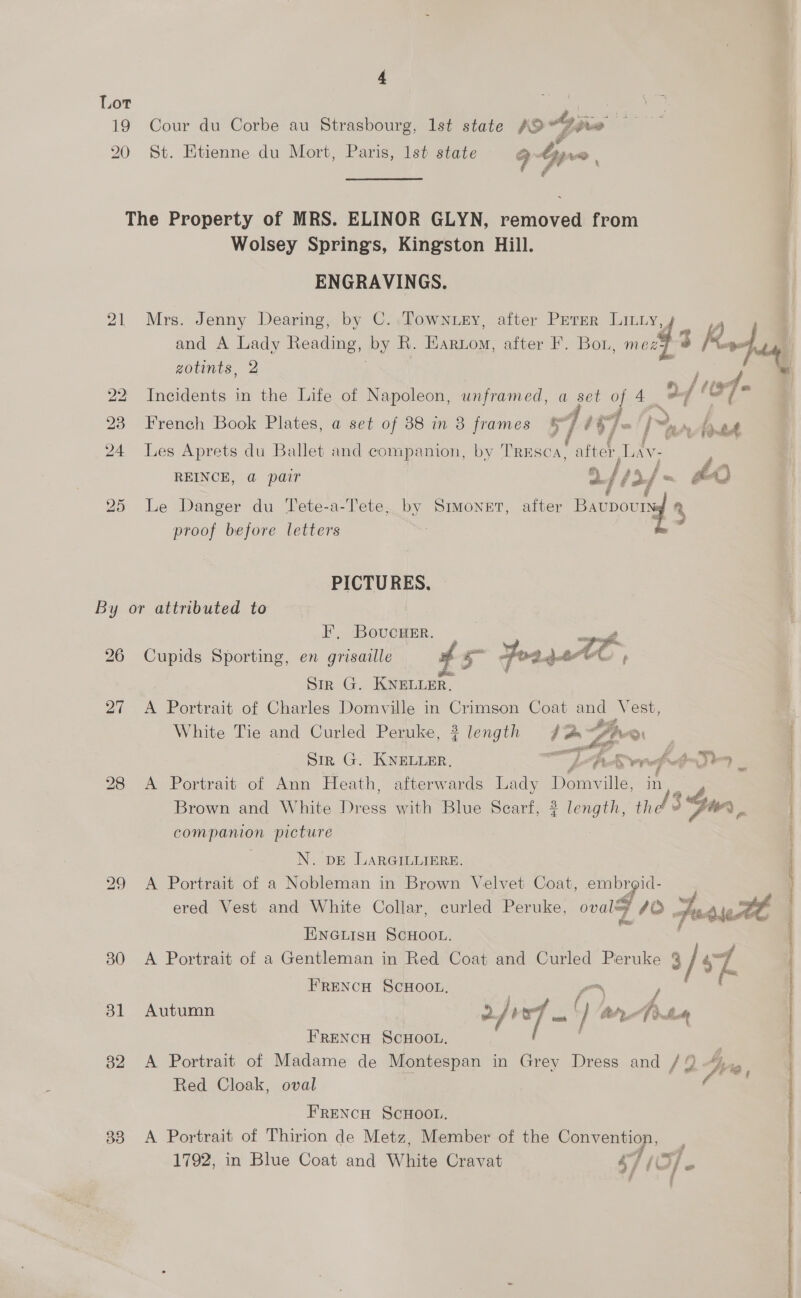 4
Lot
19 Cour du Corbe au Strasbourg, 1st state
20 St. Etienne du Mort, Paris, 1st state
The Property of MRS. ELINOR GLYN, removed from
Wolsey Springs, Kingston Hill.
ENGRAVINGS.
21 Mrs. Jenny Dearing, by C. Townley, after Peter Lilly,
and A Lady Reading, by R. Earlom, after F. Bol, mez-
zotints, 2
22 Incidents in the Life of Napoleon, unframed, a set of 4
23 French Book Plates, a set of 38 in 3 frames
24 Les Aprets du Ballet and companion, by Tresca, after Lav-
reince, a pair
25 Le Danger du Tete-a-Tete, by Simonet, after Baudouin,
proof before letters
PICTURES.
By or attributed to
F. Boucher.
26 Cupids Sporting, en grisaille
Sir G. Kneller.
27 A Portrait of Charles Domville in Crimson Coat and Vest,
White Tie and Curled Peruke, ¾ length
Sir G. Kneller.
28 A Portrait of Ann Heath, afterwards Lady Domville, in
Brown and White Dress with Blue Scarf, ¾ length, the
companion picture
N. de Largilliere.
29 A Portrait of a Nobleman in Brown Velvet Coat, embroid-
ered Vest and White Collar, curled Peruke, oval
English School.
30 A Portrait of a Gentleman in Red Coat and Curled Peruke
French School.
31 Autumn
French School.
32 A Portrait of Madame de Montespan in Grey Dress and
Red Cloak, oval
French School.
33 A Portrait of Thirion de Metz, Member of the Convention,
1792, in Blue Coat and White Cravat